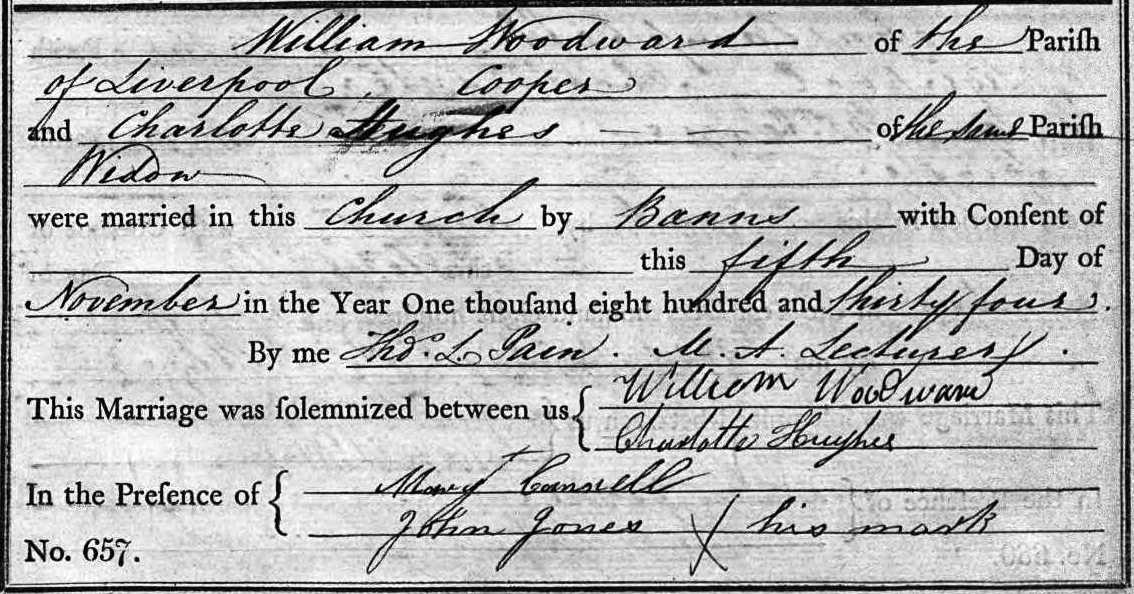 William Woodward of the Pariſh
of Liverpool, Cooper
and Charlotte Hughes — — — of the same Pariſh
Widow
were married in this Church by Banns with Conſent of
this fifth Day of
November in the Year One thouſand eight hundred and thirty four.
By me Thos. L. Pain. M. A. Lecturer.
This Marriage was ſolemnized between us { William Woodward
Charlotte Hughes
In the Preſence of { Mary
John Jones X his mark
No. 657.